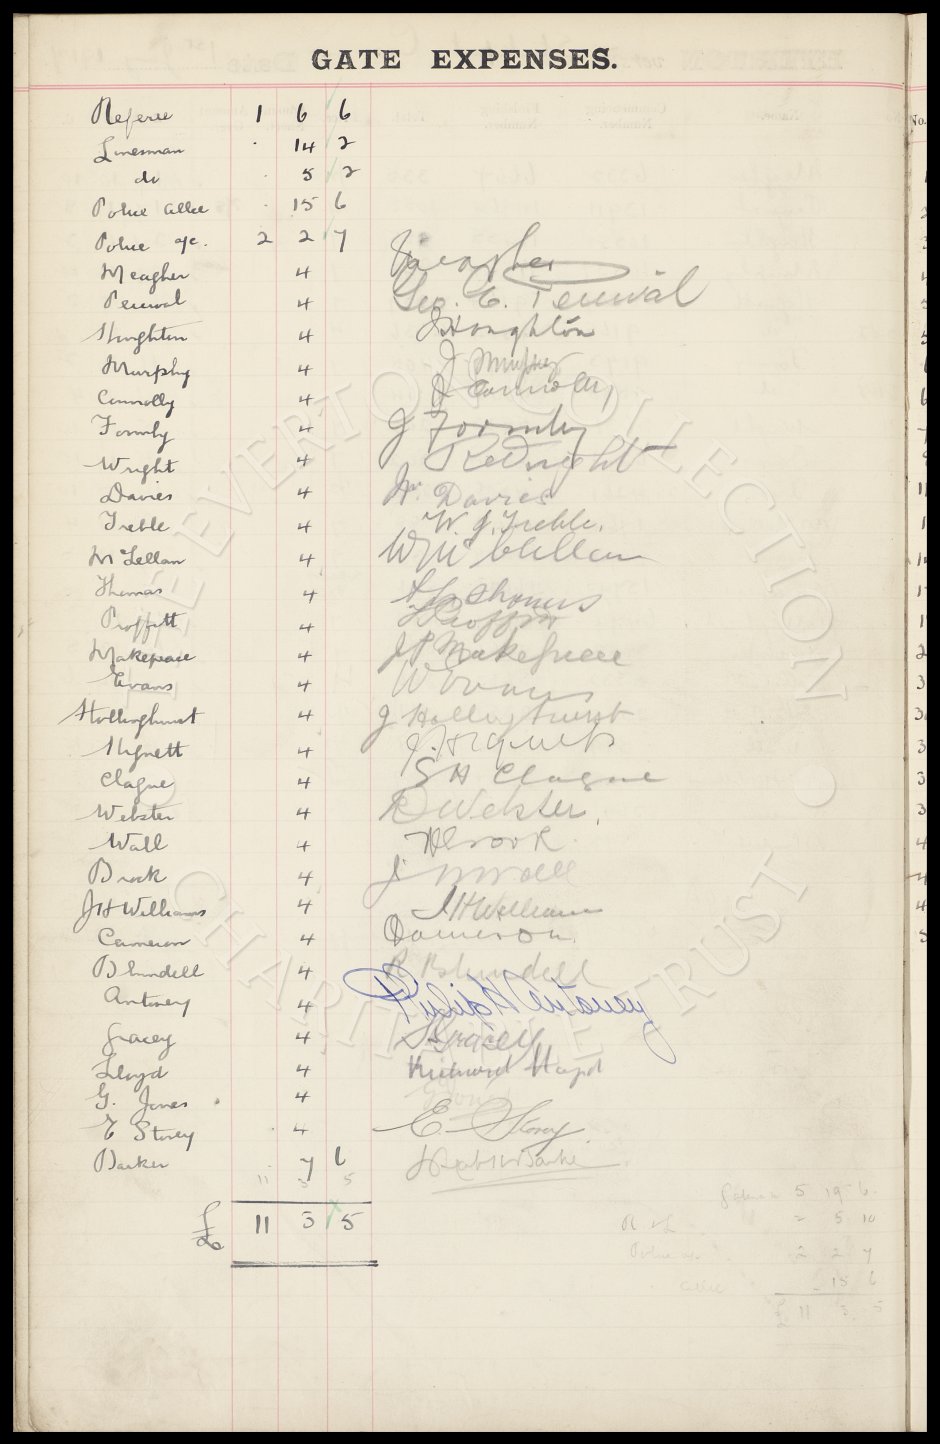 GATE EXPENSES.
Referee 1 6 6
Linesman 14 2
do 5 2
Police Allce 15 6
Police a/c. 2 2 7
Meagher 4 Meagher
Percival 4 Geo. C. Percival
Houghton 4 J Houghton
Murphy 4 J Murphy
Connolly 4 J Connolly
Formby 4 J Formby
Wright 4
Davies 4 Davies
Treble 4 W J. Treble.
McLellan 4 W McClellan
Thomas 4
Proffitt 4
Makepeace 4 J P Makepeace
Evans 4 W Evans
Hollinghurst 4 J Hollinghurst
Hignett 4 J. Hignett
Clague 4 S H Clague
Webster 4 Webster.
Wall 4 H Brook
Brook 4 Wall
J H Williams 4 J H Williams
Cameron 4 Cameron
Blundell 4 R Blundell
Antoney 4 Philip Antoney
Gracey 4 Gracey
Lloyd 4 Richard Lloyd
G. Jones 4 G Jones
E Storey 4 E Storey
Barker 7 6 Barker
11 3 5
£ 11 3 5
Gatemen 5 19 6
R & L 2 5 10
Police a/c 2 2 7
Allce 15 6
£ 11 3 5
No.
EVERTON COLLECTION CHARITABLE TRUST